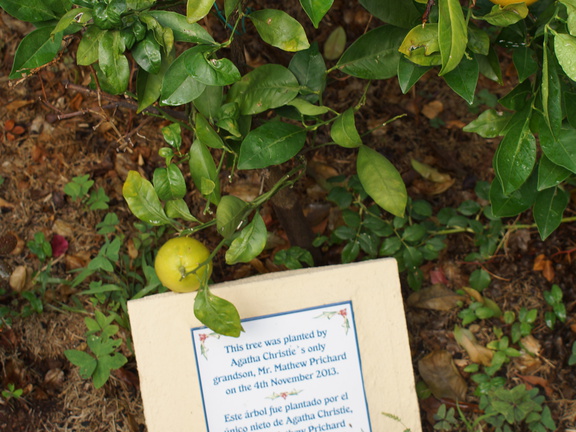 This tree was planted by
Agatha Christie`s only
grandson, Mr. Mathew Prichard
on the 4th November 2013.
Este árbol fue plantado por el
único nieto de Agatha Christie,
Mathew Prichard